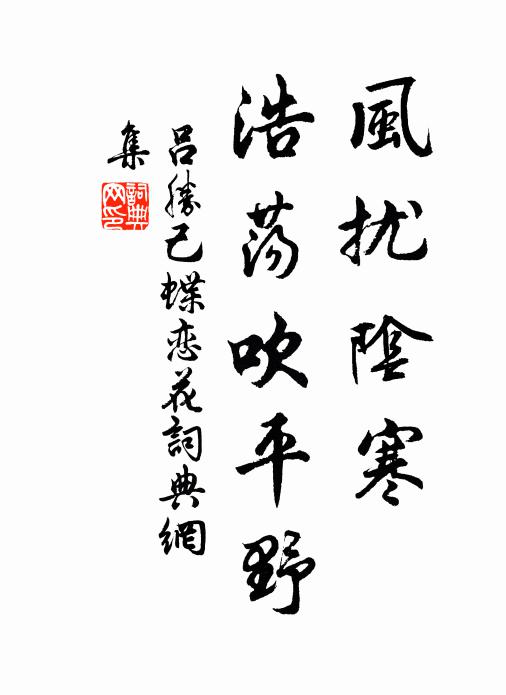 風扰陰寒
浩荡吹平野
吕勝己蝶恋花詞典網
集
詞典
网印